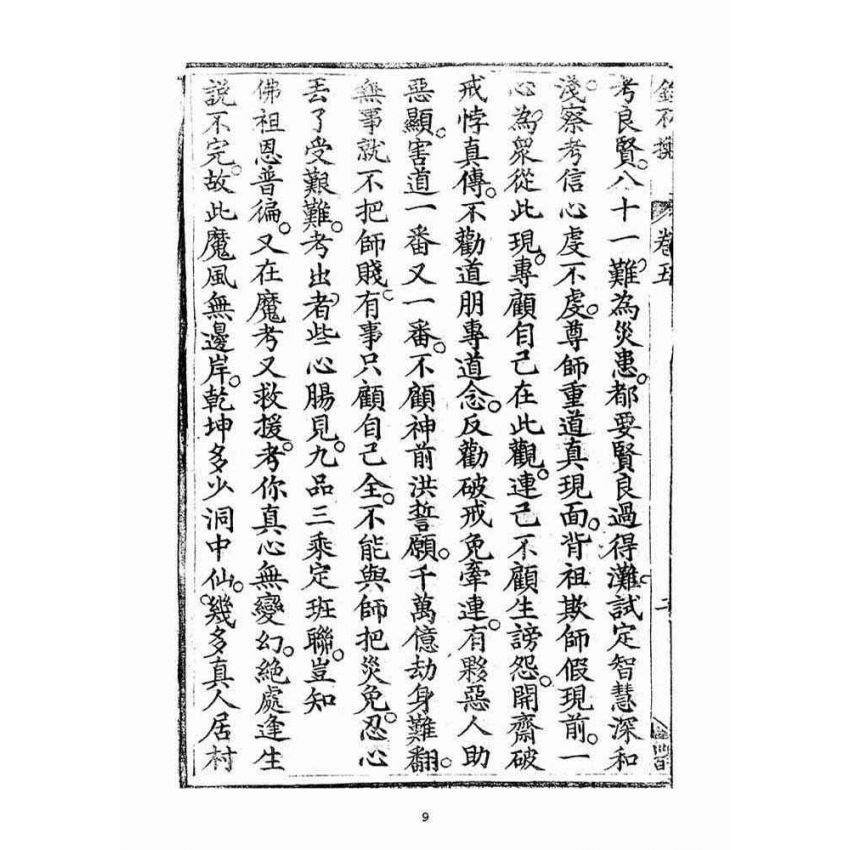 卷五
考良賢。八十一難為災患。都要賢良過得灘。試定智慧深和
淺。察考信心虔不虔。尊師重道真現面。背祖欺師假現前。一
心為衆從此現。專顧自己在此觀。連己不顧生謗怨。開齋破
戒悖真傳。不勸道朋專道念。反勸破戒免牽連。有夥惡人助
惡顯。害道一番又一番。不顧神前洪誓願。千萬億劫身難翻。
無事就不把師賤。有事只顧自己全。不能與師把災免。忍心
丟了受艱難。考出者些心腸見。九品三乘定班聯。豈知
佛祖恩普徧。又在魔考又救援。考你真心無變幻。絕處逢生
說不完。故此魔風無邊岸。乾坤多少洞中仙。幾多真人居村
9